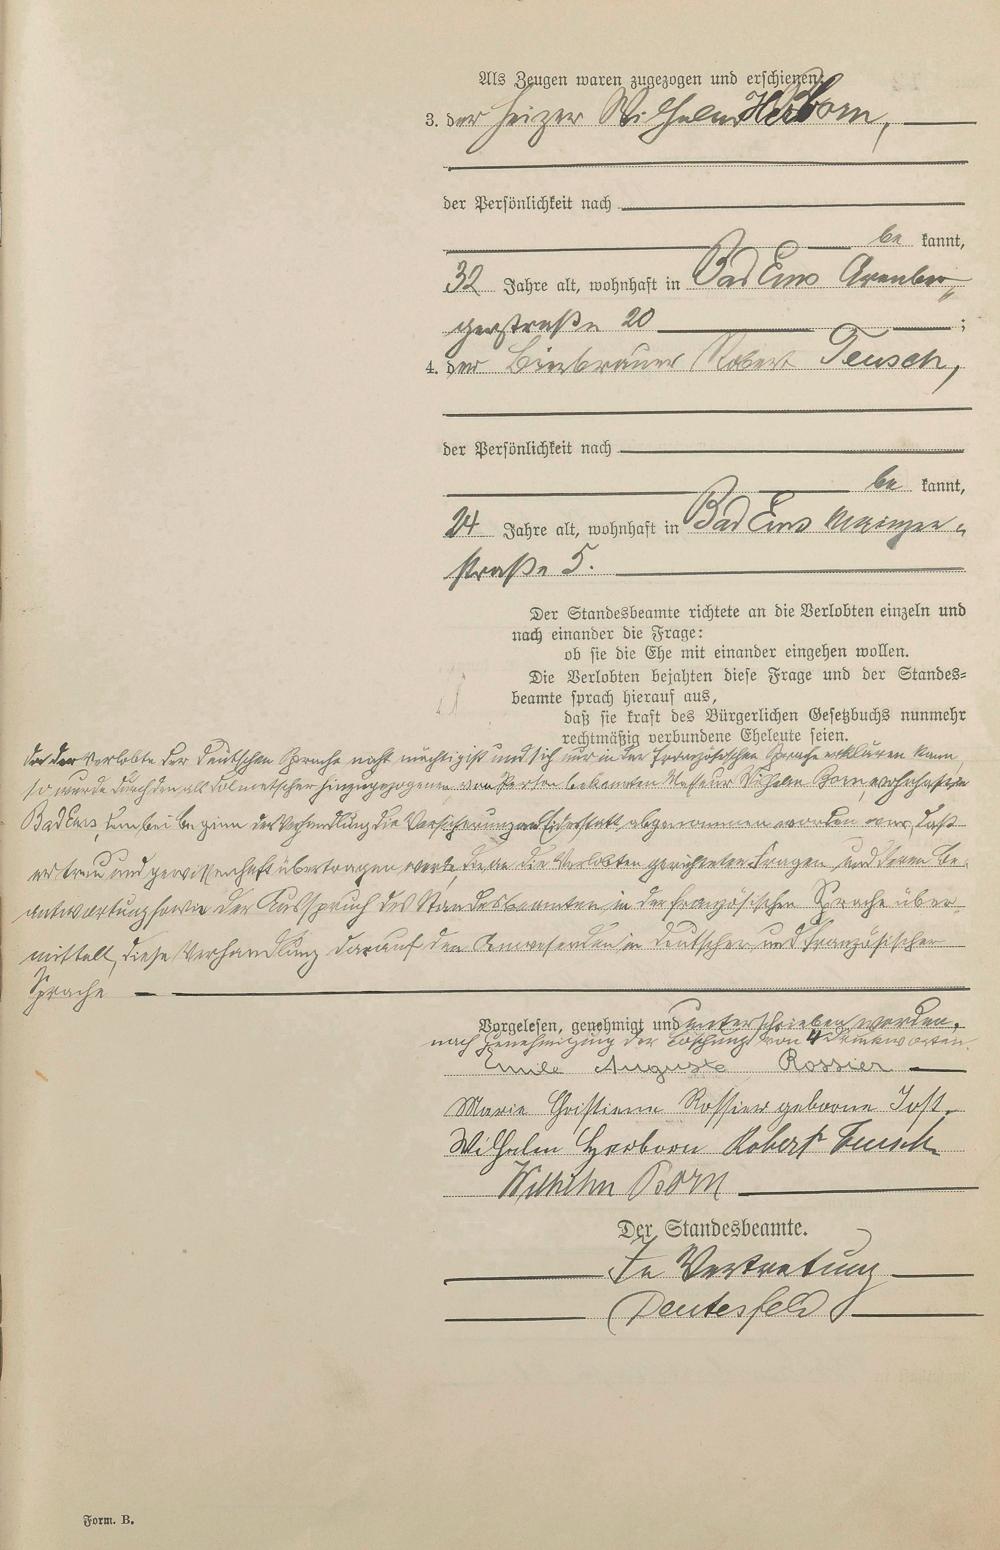 Als Zeugen waren zugezogen und erschienen:
3. der Heizer Wilhelm Herborn,
der Persönlichkeit nach
be kannt,
32 Jahre alt, wohnhaft in Bad Ems Arenber-
gerstraße 20 ;
4. der Bierbrauer Robert Teusch,
der Persönlichkeit nach
be kannt,
24 Jahre alt, wohnhaft in Bad Ems Mainzer-
straße 5.
Der Standesbeamte richtete an die Verlobten einzeln und
nach einander die Frage:
ob sie die Ehe mit einander eingehen wollen.
Die Verlobten bejahten diese Frage und der Standes-
beamte sprach hierauf aus,
daß sie kraft des Bürgerlichen Gesetzbuchs nunmehr
rechtmäßig verbundene Eheleute seien.
Da der Verlobte der deutschen Sprache nicht mächtig ist und sich nur in der französischen Sprache erklären kann,
so wurde durch den als Dolmetscher hinzugezogenen, von Person bekannten Wilhelm Born, wohnhaft in
Bad Ems, dem bei beginn der Verhandlung die Versicherung an Eidesstatt abgenommen worden war, daß
er treu und gewissenhaft übertragen werde, die an die Verlobten gerichteten Fragen und deren Be-
antwortung sowie der Ausspruch des Standesbeamten in der französischen Sprache über-
mittelt, diese Verhandlung darauf den Anwesenden in deutscher und französischer
Sprache
Vorgelesen, genehmigt und unterschrieben worden.
nach Genehmigung der Löschung von 4 Druckworten.
Emile Auguste Rossier
Marie Christiene Rossier geborne Jost.
Wilhelm Herborn Robert Teusch
Wilhelm Born
Der Standesbeamte.
In Vertretung
Deutesfeld
Form. B.